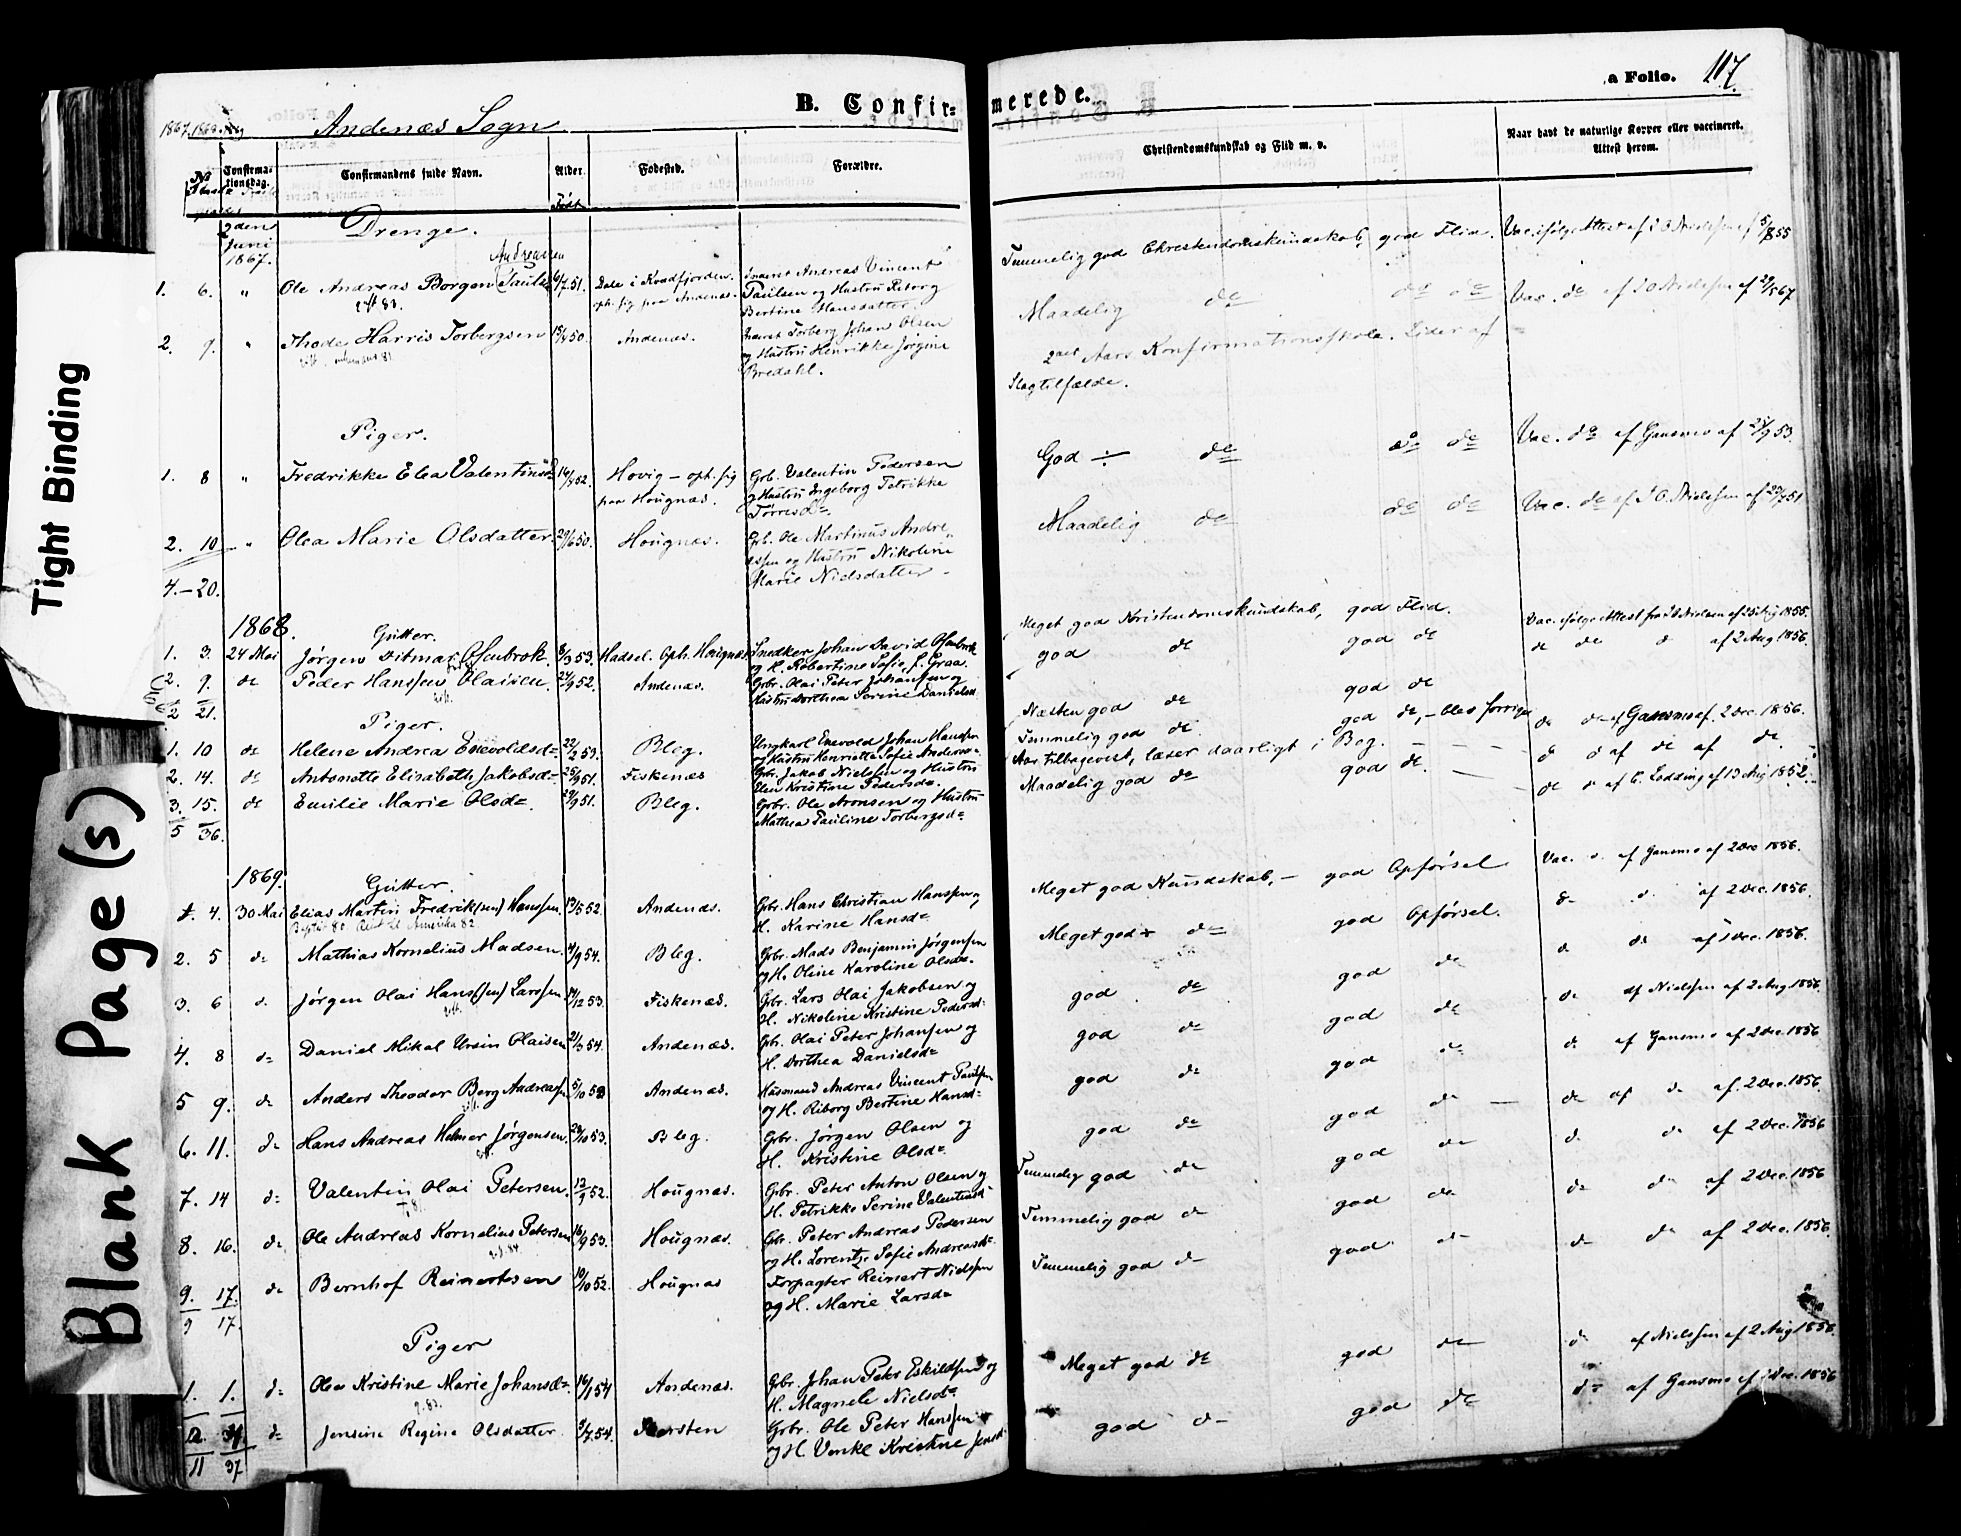 Tight Binding
Blank Page(s)
B. Confirmerede.
a Folio. 117.
1867. 1868 og
Andenæs Sogn
No
Confirmationsdag.
Confirmandens fulde Navn.
Alder.
Fødested.
Forældre.
Christendomskundskab og Flid m. v.
Naar havt de naturlige Kopper eller vaccineret. Attest herom.
Født
Drenge.
9den Juni 1867.
Andreassen
1. 6. " Ole Andreas Borgen (Pauls 6/7 51. Dale i Kvædfjorden. oph. sig paa Andenæs. Inderst Andreas Vincent Paulsen og Hustru Riborg Bertine Hansdatter.
Temmelig god Christendomskundskab, god Flid. Vac. ifølge Attest af J O Nielsen
2. 9. " Thode Harris Torbergsen 50. Andenæs. Torberg Johan Olsen og Hustru Henrikke Jørgine Bredahl.
Maadelig do do do Vac. do af J O Nielsen af
2aet Aars Konfirmationsskole. Lider af Slagtilfælde.
Piger.
1. 8 " Fredrikke Elea Valentinsd= 52. Hovig – oph. sig paa Hougnæs. Grb. Valentin Pedersen og Hustru Ingeborg Petrikke Torrisd=.
God ÷ do do do Vac. do af Gansmo af 53.
2. 10 " Olea Marie Olsdatter. 29/6 50. Hougnæs. Grb. Ole Martinus Andreassen og Hustru Nikoline Marie Nielsdatter.
Maadelig do do do Vac. do af J O. Nielsen af
4. – 20.
1868.
Gutter.
1. 3. 24 Mai Jørgen Ditmar Osenbrok. 53. Hadsel. Oph. Hougnæs Snedker Johan David Osenbrok og H. Robertine Sofie f. Graa.
Meget god Kristendomskundskab, god Flid. Vac. ifølge Attest fra J O Nielsen af 25 Aug 1855.
2. 9. do Peder Hanssen Olaisen. 52. Andenæs. Grbr. Olai Peter Johansen og Hustru Dorthea Serine Danielsd.
god do god do do do af 2 Aug 1856.
2 21.
Piger.
1. 10 do Helene Andrea Enevoldsd= 22/2 53. Bleg. Ungkarl Enevold Johan Hansen og Hustru Henriette Sofie Andersd=.
Næsten god do god do do do af Gansmo af. 2 Dec. 1856.
2. 14. do Antonette Elisabeth Jakobsd= 51. Fiskenæs Gbr. Jakob Nielssen og Hustru Elen Kristine Pedersd=.
Temmelig god do. god do, – blev forrige Aar tilbagevist, læser daarligt i Bog. do do af do af do.
3. 15. do Emilie Marie Olsd=. 29/9 51. Bleg. Grbr. Ole Aronsen og Hustru Mathea Pauline Torbergsd=
Maadelig god do god do. do do af C. Lodding af 13 Aug 1852.
5 36.
1869.
Gutter.
1. 4. 30 Mai Elias Martin Fredrik(sen) Hanssen. 52. Andenæs. Gbr. Hans Christian Hanssen og H. Karine Hansd=
Meget god Kundskab, – god Opførsel Vac. do af Gansmo af 2 Dec 1856.
2. 5 do Mathias Kornelius Madsen. 54. Bleg. Grbr. Mads Benjamin Jørgensen og H. Oline Karoline Olsd=.
Meget god do god Opførsel. do do af 2 Dec. 1856.
3. 6 do Jørgen Olai Hans(sen) Larssen. 12 53. Fiskenæs. Grbr. Lars Olai Jakobsen og H. Nikoline Kristine Pedersd:
god do god do do do af 1 Dec. 1856.
4. 8 do Daniel Mikal Ursin Olaisen 54. Andenæs. Gbr. Olai Peter Johansen og H. Dorthea Danielsd=
god do god do do af Nielssen af 2 Aug 1856
5 9. do Anders Theodor Berg Andreass. 5/10 53 Andenæs. Husmand Andreas Vincent Paulsen og H. Riborg Bertine Hansd=
god do god do do af Gansmo af 2 Dec. 1856
6. 11. do Hans Andreas Helmer Jørgensen. 10 53. Bleg. Grbr. Jørgen Olsen og H. Kristine Olsd=.
god do god do do af do af. 2 Dec. 1856.
7. 14 do Valentin Olai Petersen. 12/9 52. Hougnæs. Grbr. Peter Anton Olsen og H. Petrikke Serine Valentinsd.
Temmelig god do god do do do af 2 Dec. 1856
8. 16. do Ole Andreas Kornelius Petersen 16/9 53. Hougnæs. Gbr. Peter Andreas Pedersen og H. Lorentze Sofie Andreasd=.
Temmelig god do god do do do af 2 Dec. 1856
9. 17. do Bernhof Reinertsen 10/10 52. Hougnæs Forpagter Reinert Nielsen og H. Marie Larsd=
Temmelig god do god do do do af 2 Dec. 1856.
9 17.
Piger
1. 1. do Olea Kristine Marie Johansd=. 16/1 54 Andenæs. Grbr. Johan Peter Eskildsen og H. Magnele Nielsd=.
Meget god do god do do af Nielssen af 2 Aug 1856.
2. do Jensine Regine Olsdatter. 54. Grbr. Ole Peter Hanssen og H. Venke Kristine Jensd
god do god do do af Gansmo af 1 Dec. 1856
11 37